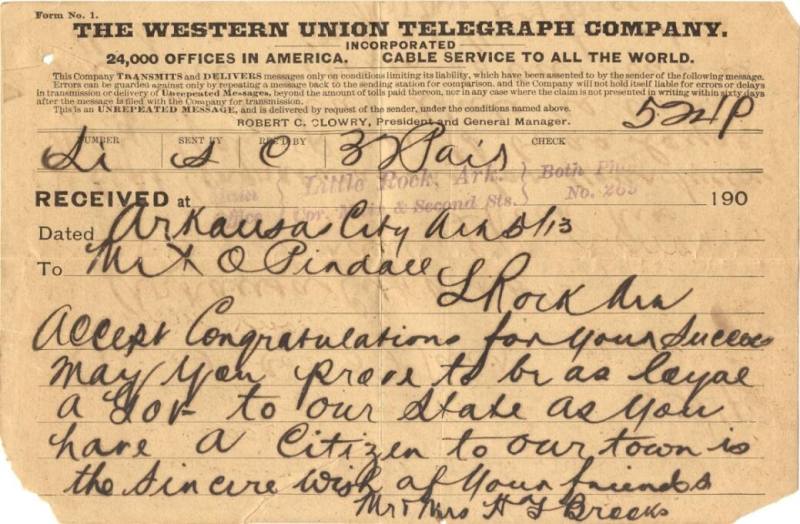 Form No. 1.
THE WESTERN UNION TELEGRAPH COMPANY.
INCORPORATED
24,000 OFFICES IN AMERICA. CABLE SERVICE TO ALL THE WORLD.
This Company TRANSMITS and DELIVERS messages only on conditions limiting its liability, which have been assented to by the sender of the following message.
Errors can be guarded against only by repeating a message back to the sending station for comparison, and the Company will not hold itself liable for errors or delays
in transmission or delivery of Unrepeated Messages, beyond the amount of tolls paid thereon, nor in any case where the claim is not presented in writing within sixty days
after the message is filed with the Company for transmission.
This is an UNREPEATED MESSAGE, and is delivered by request of the sender, under the conditions named above.
ROBERT C. CLOWRY, President and General Manager.
NUMBER SENT BY REC'D BY CHECK
S C 32 Paid
Little Rock, Ark. Both
& Second Sts. No.
RECEIVED at 190
Dated Arkansas City Ark 5/13
To Mr X O Pindall
L Rock Ark
Accept Congratulations for your Success
may you prove to be as loyal
a Gov to our State as you
have a Citizen to our town is
the Sincere wish of your friends
Mr & Mrs H S Brooks